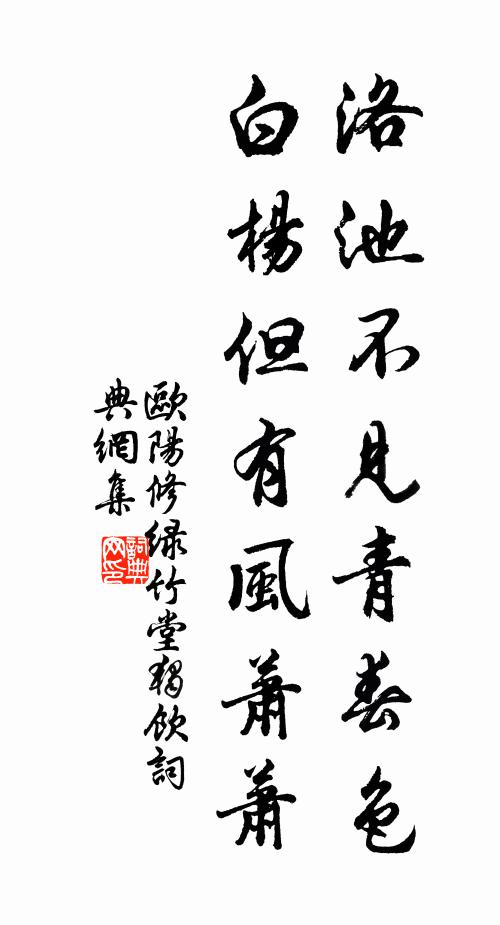 洛池不見青春色
白楊但有風蕭蕭
歐陽修綠竹堂獨飲詞
典網集
詞典網印